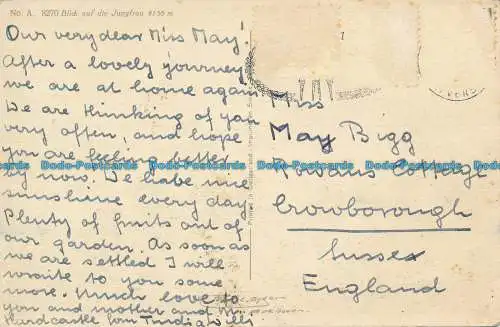 No. A. 8270 Blick auf die Jungfrau 4158 m
Our very dear Miss May!
After a lovely journey
we are at home again
We are thinking of you
very often, and hope
you are feeling better
by now. We habe nice
sunshine every day
Plenty of fruits out of
our garden. As soon as
we are settled I will
wraite to you some
more. Much love to
you and mother and
Hardcastle from Trudi a Willi
Miss
May Bigg
Rowans Cottage
Crowborough
Sussex
England
Dodo-Postcards Dodo-Postcards Dodo-Postcards